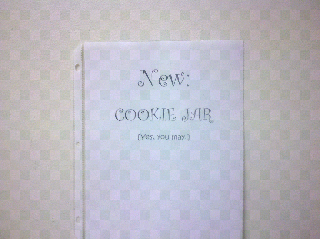 New:
COOKIE JAR
(Yes, you may.)